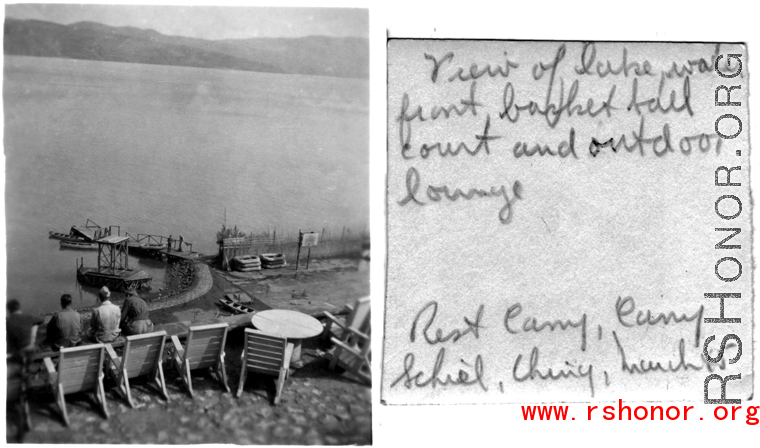 View of lake, water
front, basket ball
court and outdoor
lounge
Rest Camp, Camp
Schiel, China, March 45
RSHONOR.ORG
www.rshonor.org